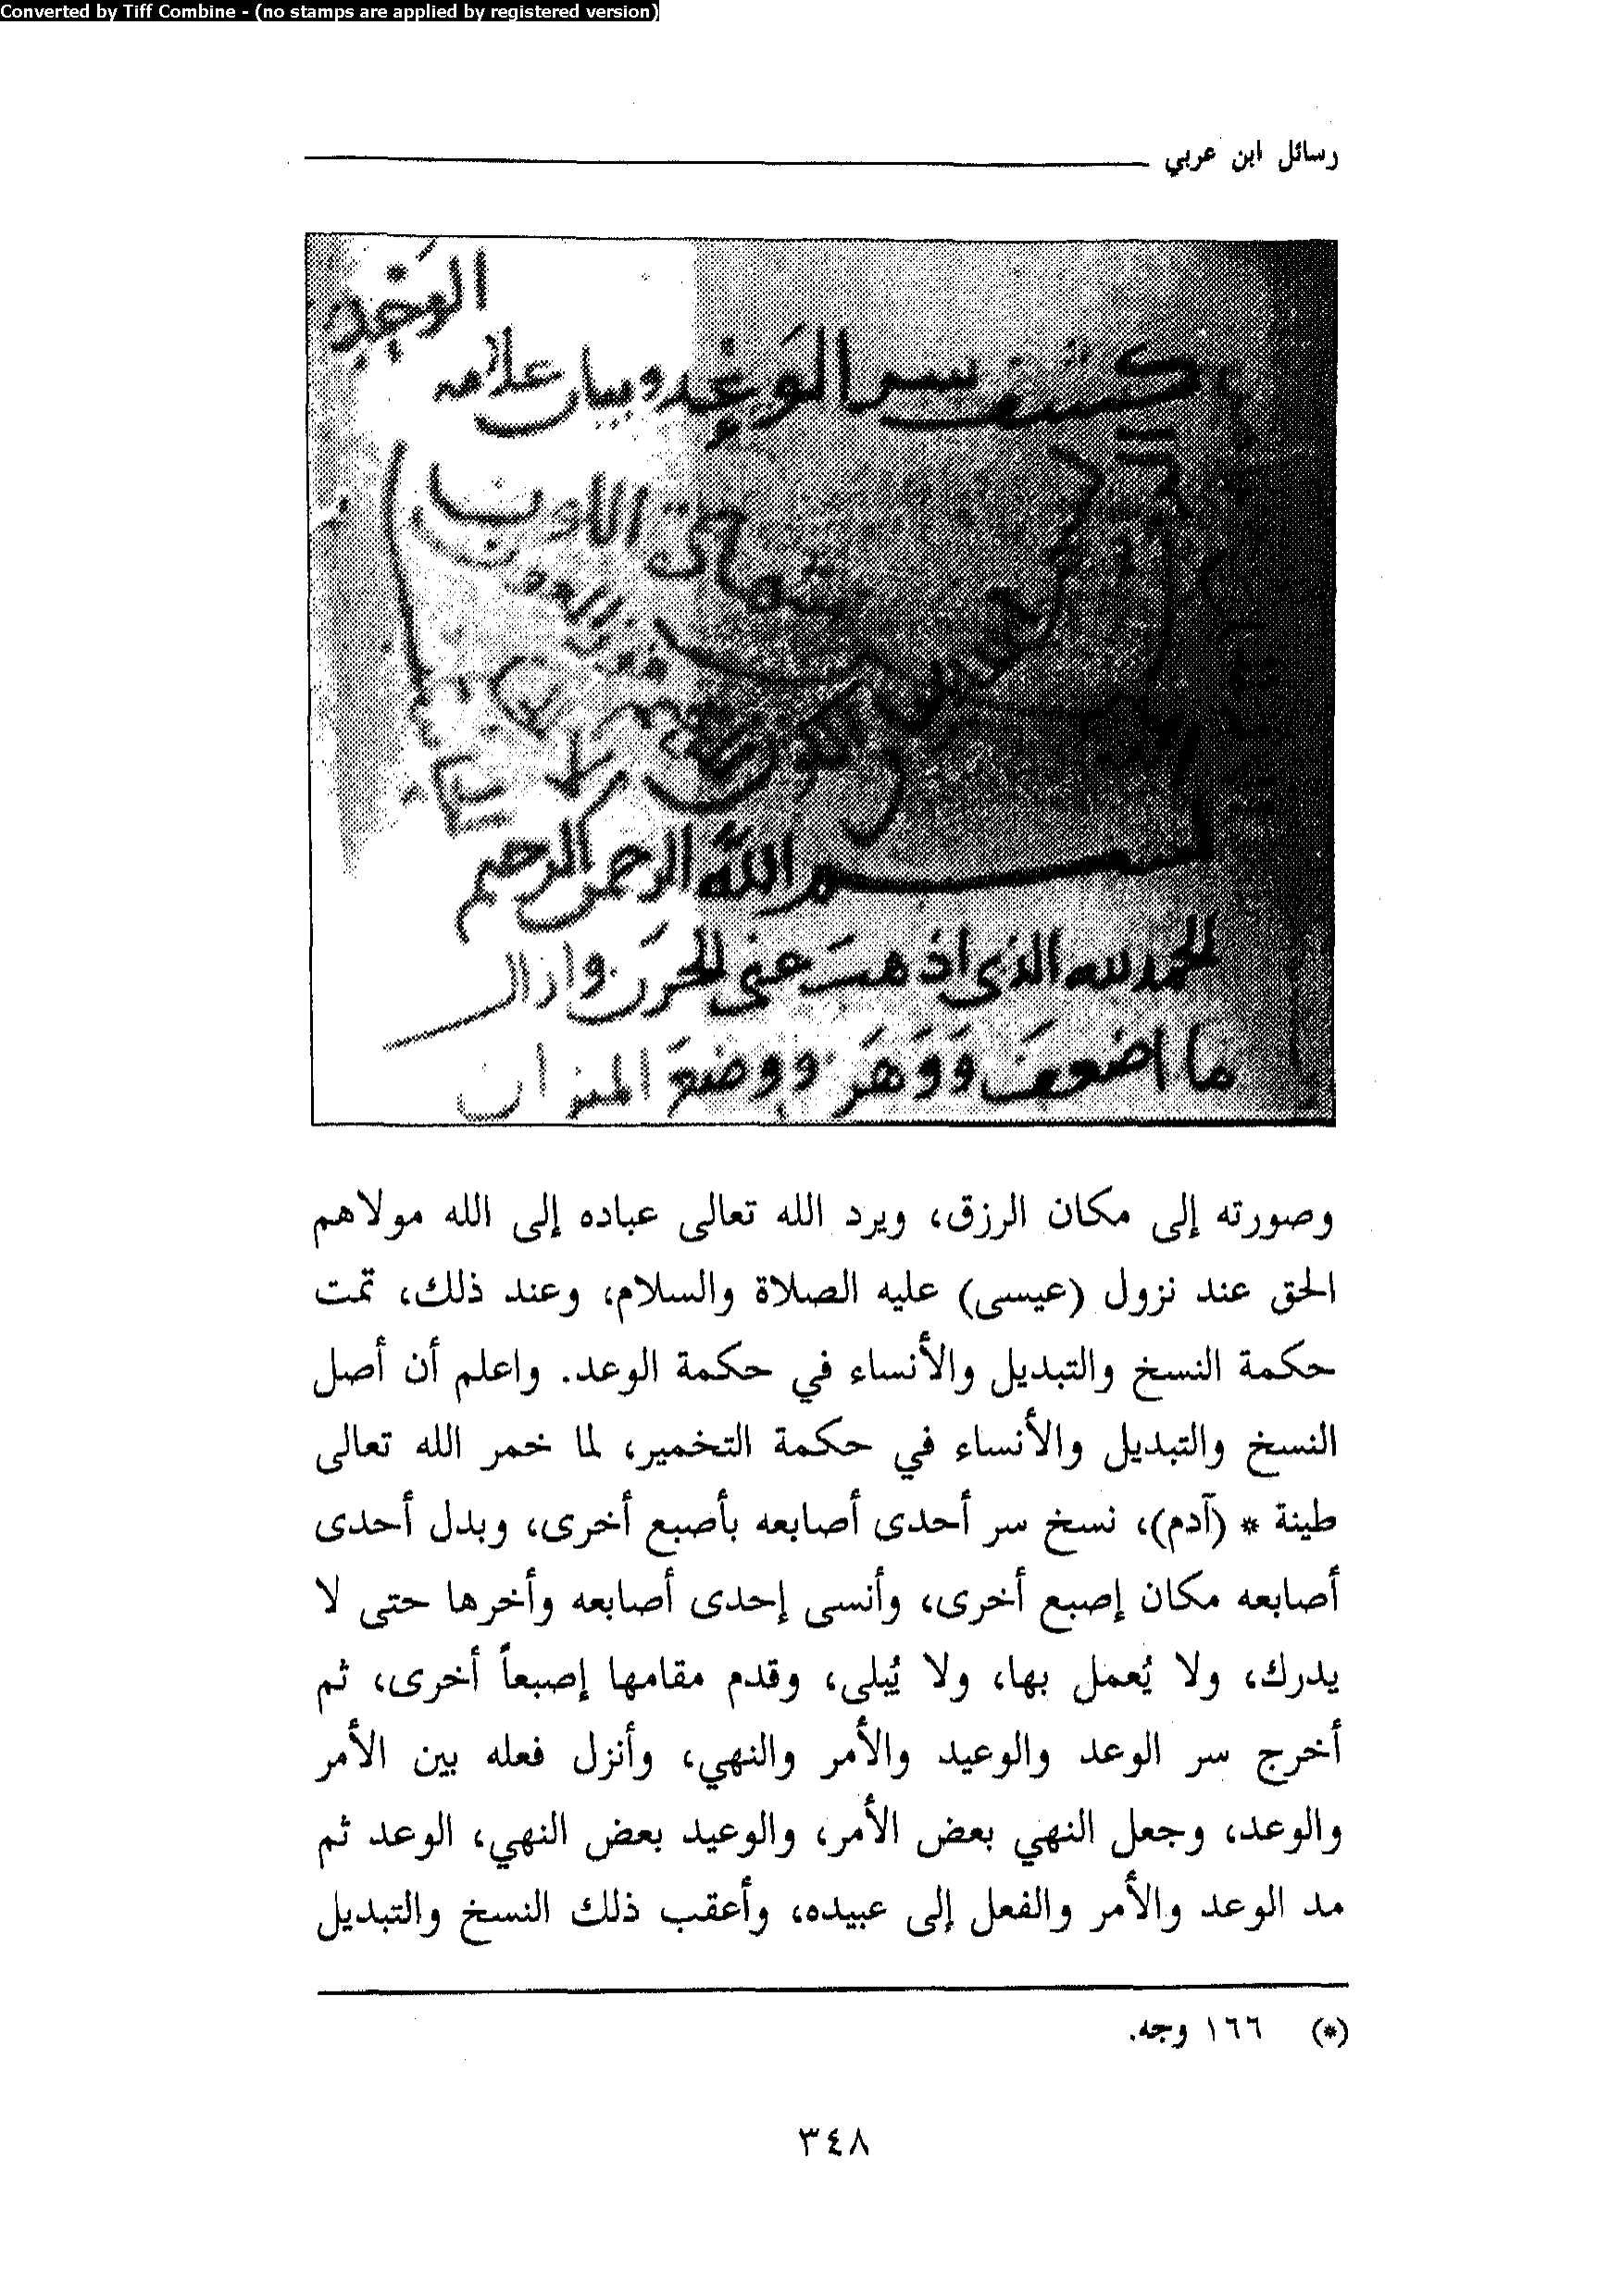 Converted by Tiff Combine - (no stamps are applied by registered version)
رسائل ابن عربي
الوَجْد
كشف سر الوَعْد وبيان علامة
بسم الله الرحمن الرحيم
الحمد لله الذي اذهبَ عني الحزَن وازال
ما اضعفَ وَوَهَن ووضعَ الميزان
وصورته إلى مكان الرزق، ويرد الله تعالى عباده إلى الله مولاهم
الحق عند نزول (عيسى) عليه الصلاة والسلام، وعند ذلك، تمت
حكمة النسخ والتبديل والأنساء في حكمة الوعد. واعلم أن أصل
النسخ والتبديل والأنساء في حكمة التخمير، لما خمر الله تعالى
طينة * (آدم)، نسخ سر أحدى أصابعه بأصبع أخرى، وبدل أحدى
أصابعه مكان إصبع أخرى، وأنسى إحدى أصابعه وأخرها حتى لا
يدرك، ولا يُعمل بها، ولا يُبلى، وقدم مقامها إصبعاً أخرى، ثم
أخرج سر الوعد والوعيد والأمر والنهي، وأنزل فعله بين الأمر
والوعد، وجعل النهي بعض الأمر، والوعيد بعض النهي، الوعد ثم
مد الوعد والأمر والفعل إلى عبيده، وأعقب ذلك النسخ والتبديل
(*) ١٦٦ وجه.
٣٤٨